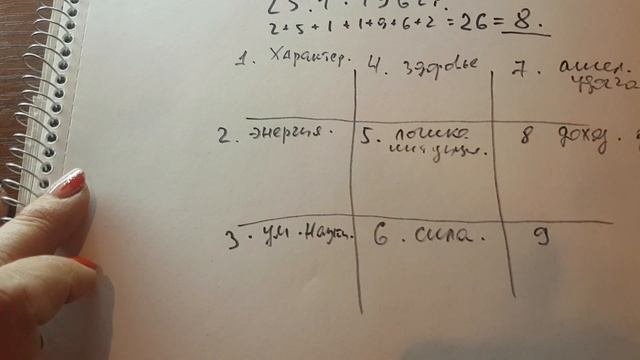 2+5+1+1+9+6+2=26=8.
1. Характер. 4. здоровье 7. ангел.
удача
2. энергия. 5. логика 8 доход.
интуиция.
3. ум. Науки. 6. сила. 9